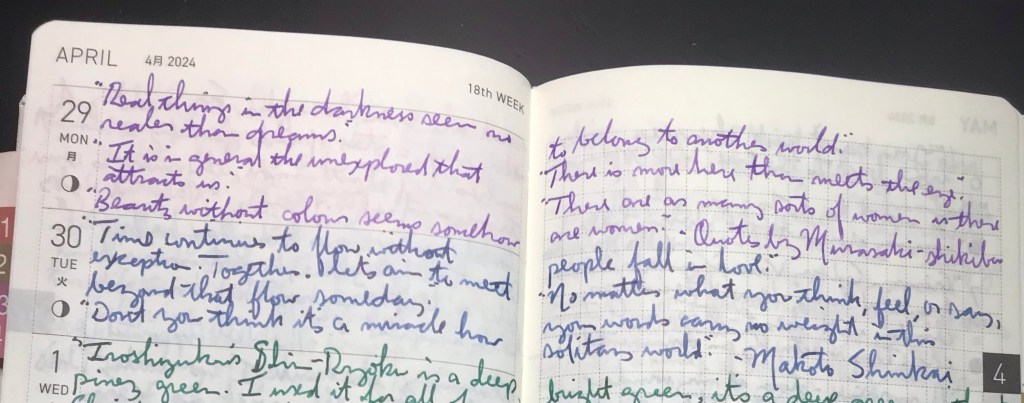 APRIL 4月 2024
18th WEEK
29
MON
月
"Real things in the darkness seem no
realer than dreams."
"It is in general the unexplored that
attracts us."
"Beauty without colour seems somehow
to belong to another world."
"There is more here than meets the eye."
"There are as many sorts of women as there
are women." - Quotes by Murasaki-shikibu
30
TUE
火
"Time continues to flow without
exception. Together. let's aim to meet
beyond that flow someday.
"Don't you think it's a miracle how
people fall in love."
"No matter what you think, feel, or say,
your words carry no weight in this
solitary world." - Makoto Shinkai
1
WED
"Iroshizuku's Shin-Ryoku is a deep
piney green. I used it for all
bright green, it's a deep green
MAY
1
2
3
4